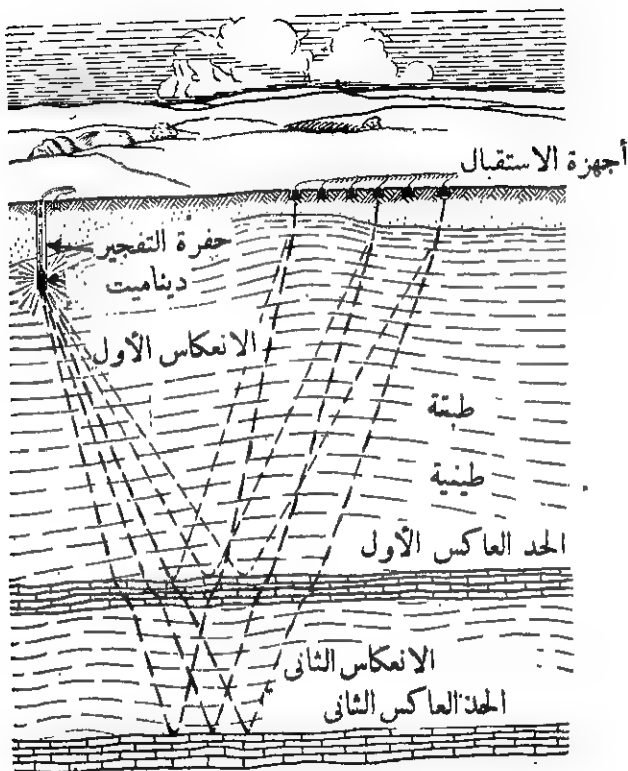 أجهزة الاستقبال
حفرة التفجير
ديناميت
الانعكاس الأول
طبقة
طينية
الحد العاكس الأول
الانعكاس الثانى
الحد العاكس الثانى